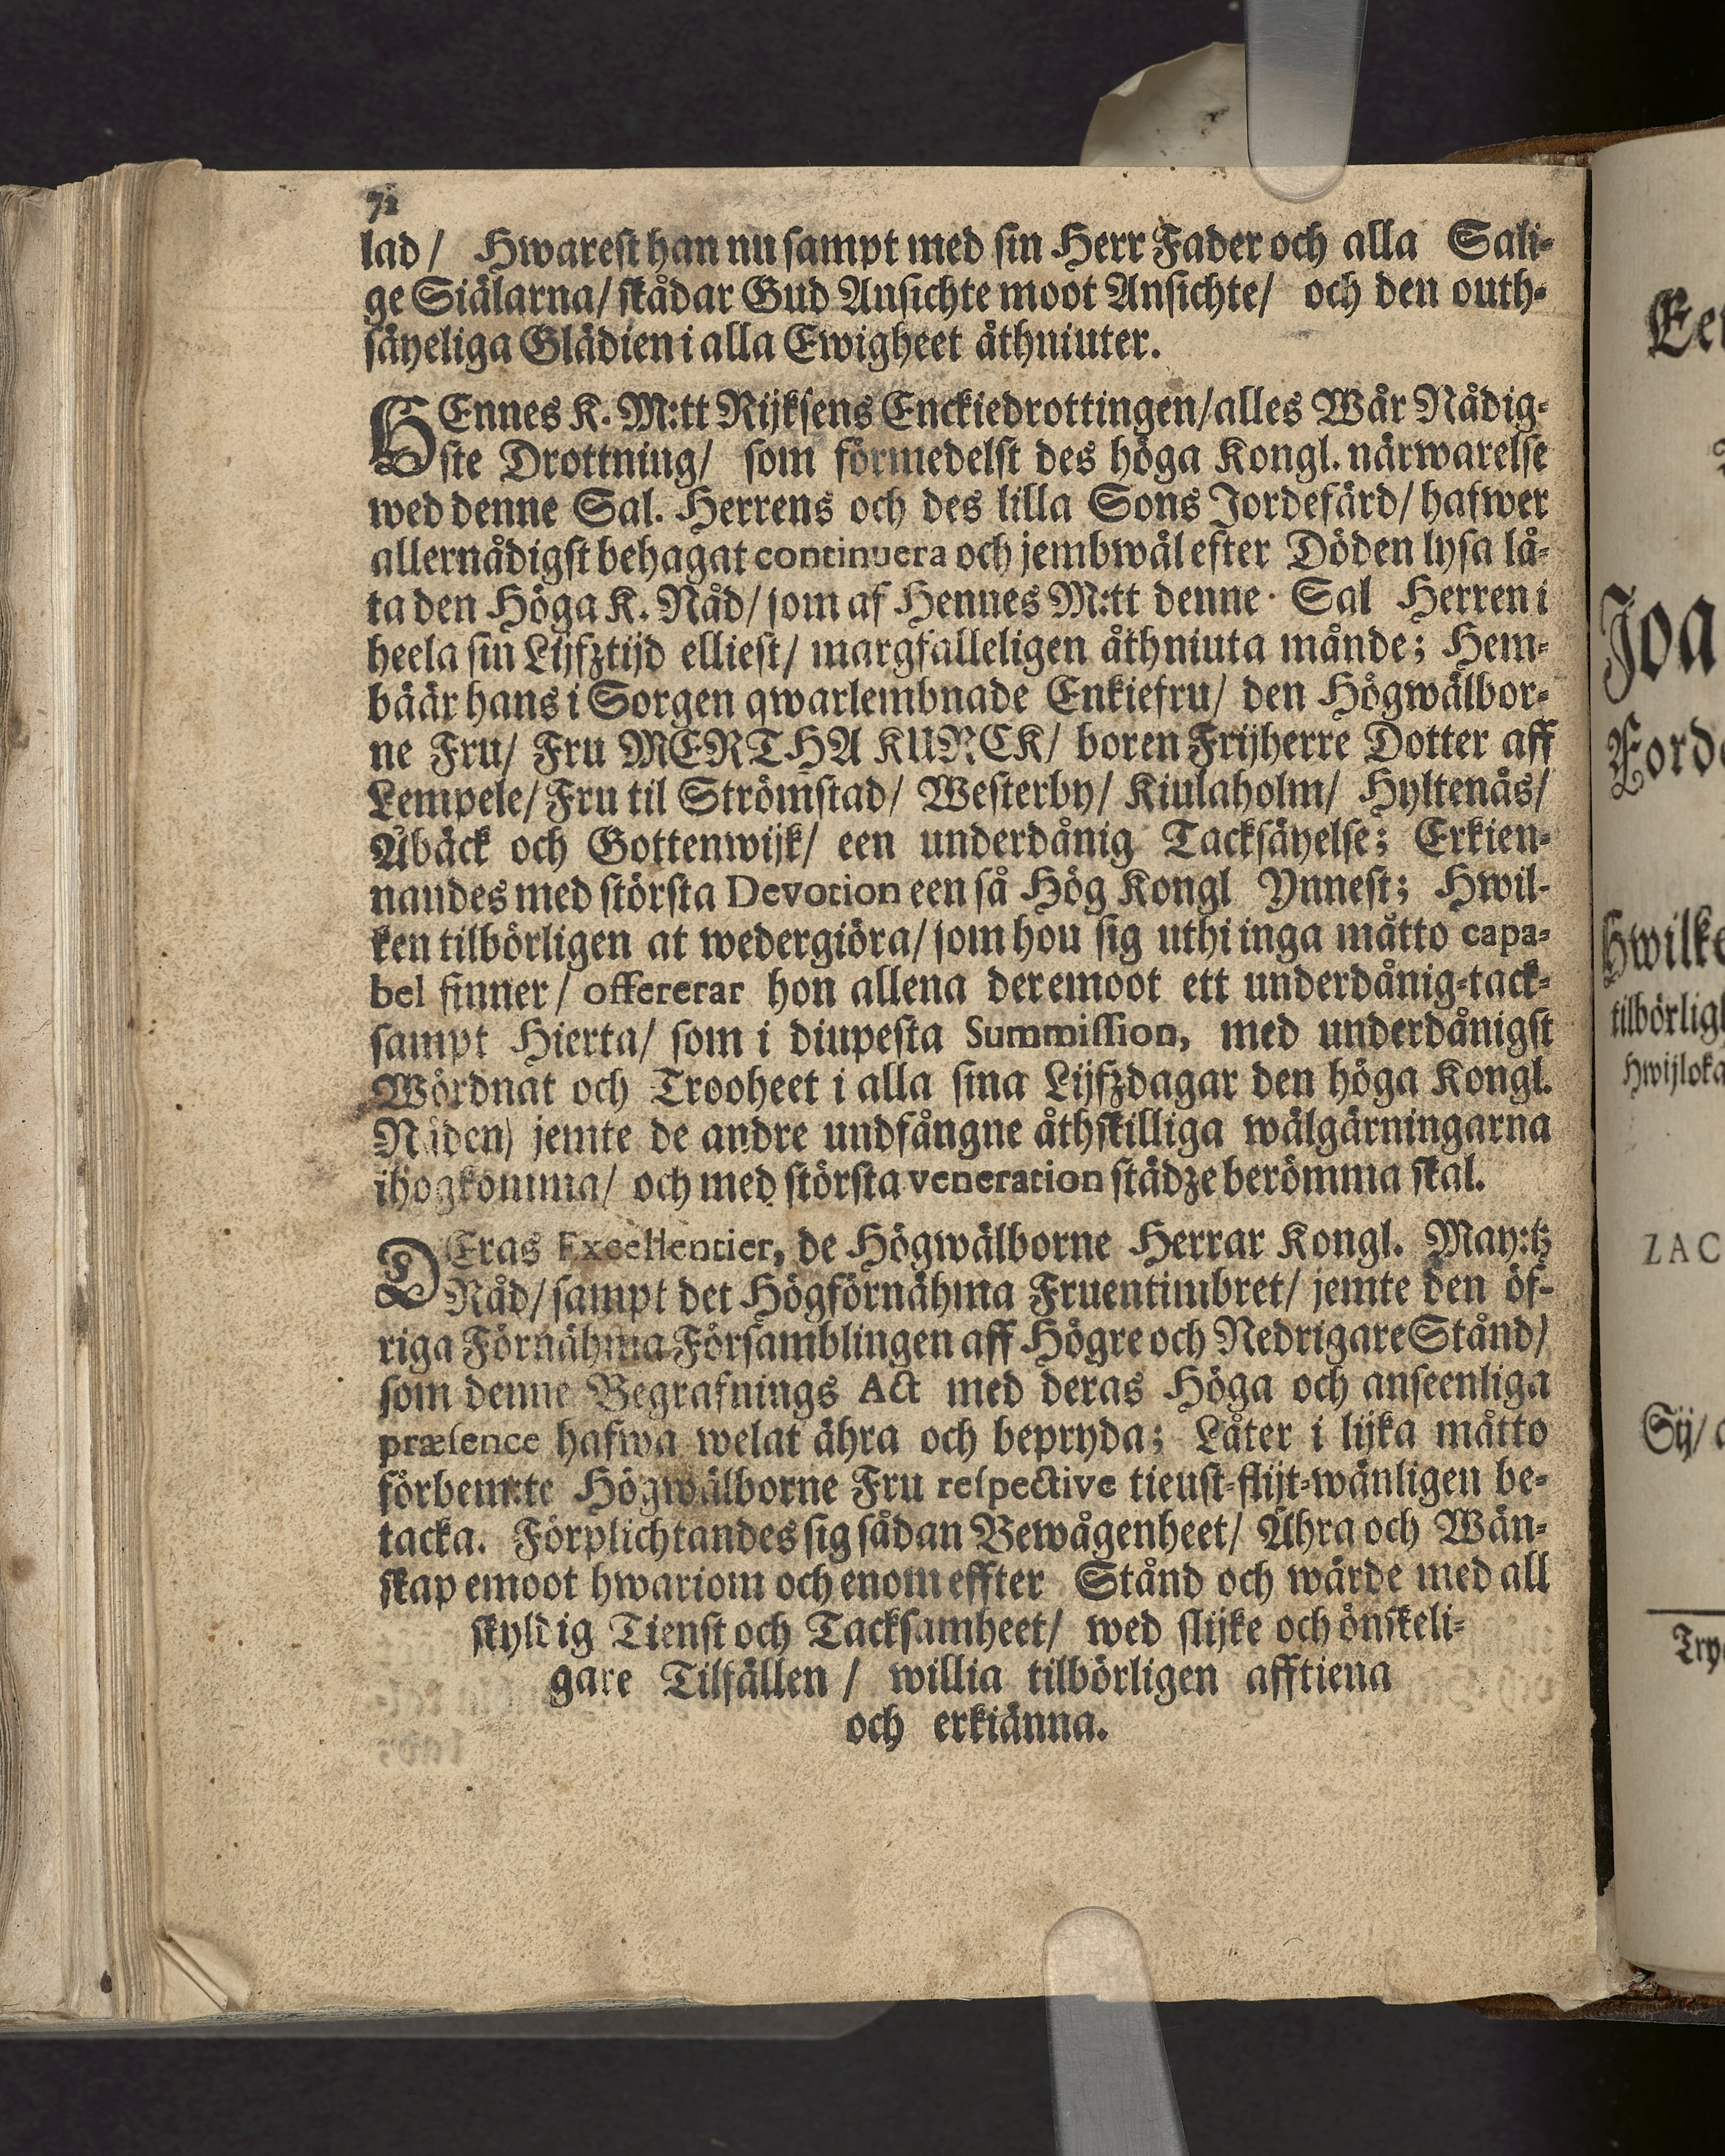 72
lad/ Hwarest han nu sampt med sin Herr Fader och alla Sali-
ge Siälarna/ skådar Gud Ansichte moot Ansichte/ och den outh-
säyeliga Glädien i alla Ewigheet åthniuter.
HEnnes K. M:tt Rijksens Enckiedrottingen/alles Wår Nådig-
ste Drottning/ som förmedelst des höga Kongl. närwarelse
wed denne Sal. Herrens och des lilla Sons Jordefärd/ hafwer
allernådigst behagat continuera och jembwäl efter Döden lysa lå-
ta den Höga K. Nåd/ som af Hennes M:tt denne Sal Herren i
heela sin Lijfztijd elliest/ margfalleligen åthniuta månde; Hem-
bäär hans i Sorgen qwarlembnade Enkiefru/ den Högwälbor-
ne Fru/ Fru MERTHA KURCK/ boren Frijherre Dotter aff
Lempele/ Fru til Strömstad/ Westerby/ Kiulaholm/ Hyltenäs/
Åbäck och Gottenwijk/ een underdånig Tacksäyelse; Erkien-
nandes med största Devotion een så Hög Kongl Ynnest; Hwil-
ken tilbörligen at wedergiöra/ som hon sig uthi inga måtto capa-
bel finner/ offererar hon allena deremoot ett underdånig-tack-
sampt Hierta/ som i diupesta Summission, med underdånigst
Wördnat och Trooheet i alla sina Lijfzdagar den höga Kongl.
Nåden) jemte de andre undfångne åthskilliga wälgärningarna
ihogkomma/ och med största veneration städze berömma skal.
DEras Excellentier, de Högwälborne Herrar Kongl. May:tz
Råd/ sampt det Högförnähma Fruentimbret/ jemte den öf-
riga Förnähma Församblingen aff Högre och Nedrigare Stånd/
som denne Begrafnings Act med deras Höga och anseenliga
præsence hafwa welat ähra och bepryda; Låter i lijka måtto
förbem:te Högwälborne Fru respective tienst-flijt-wänligen be-
tacka. Förplichtandes sig sådan Bewågenheet/ Ähra och Wän-
skap emoot hwariom och enom effter Stånd och wärde med all
skyldig Tienst och Tacksamheet/ wed slijke och önskeli-
gare Tilfällen / willia tilbörligen afftiena
och erkiänna.
Joa
tilbörlig
ZAC